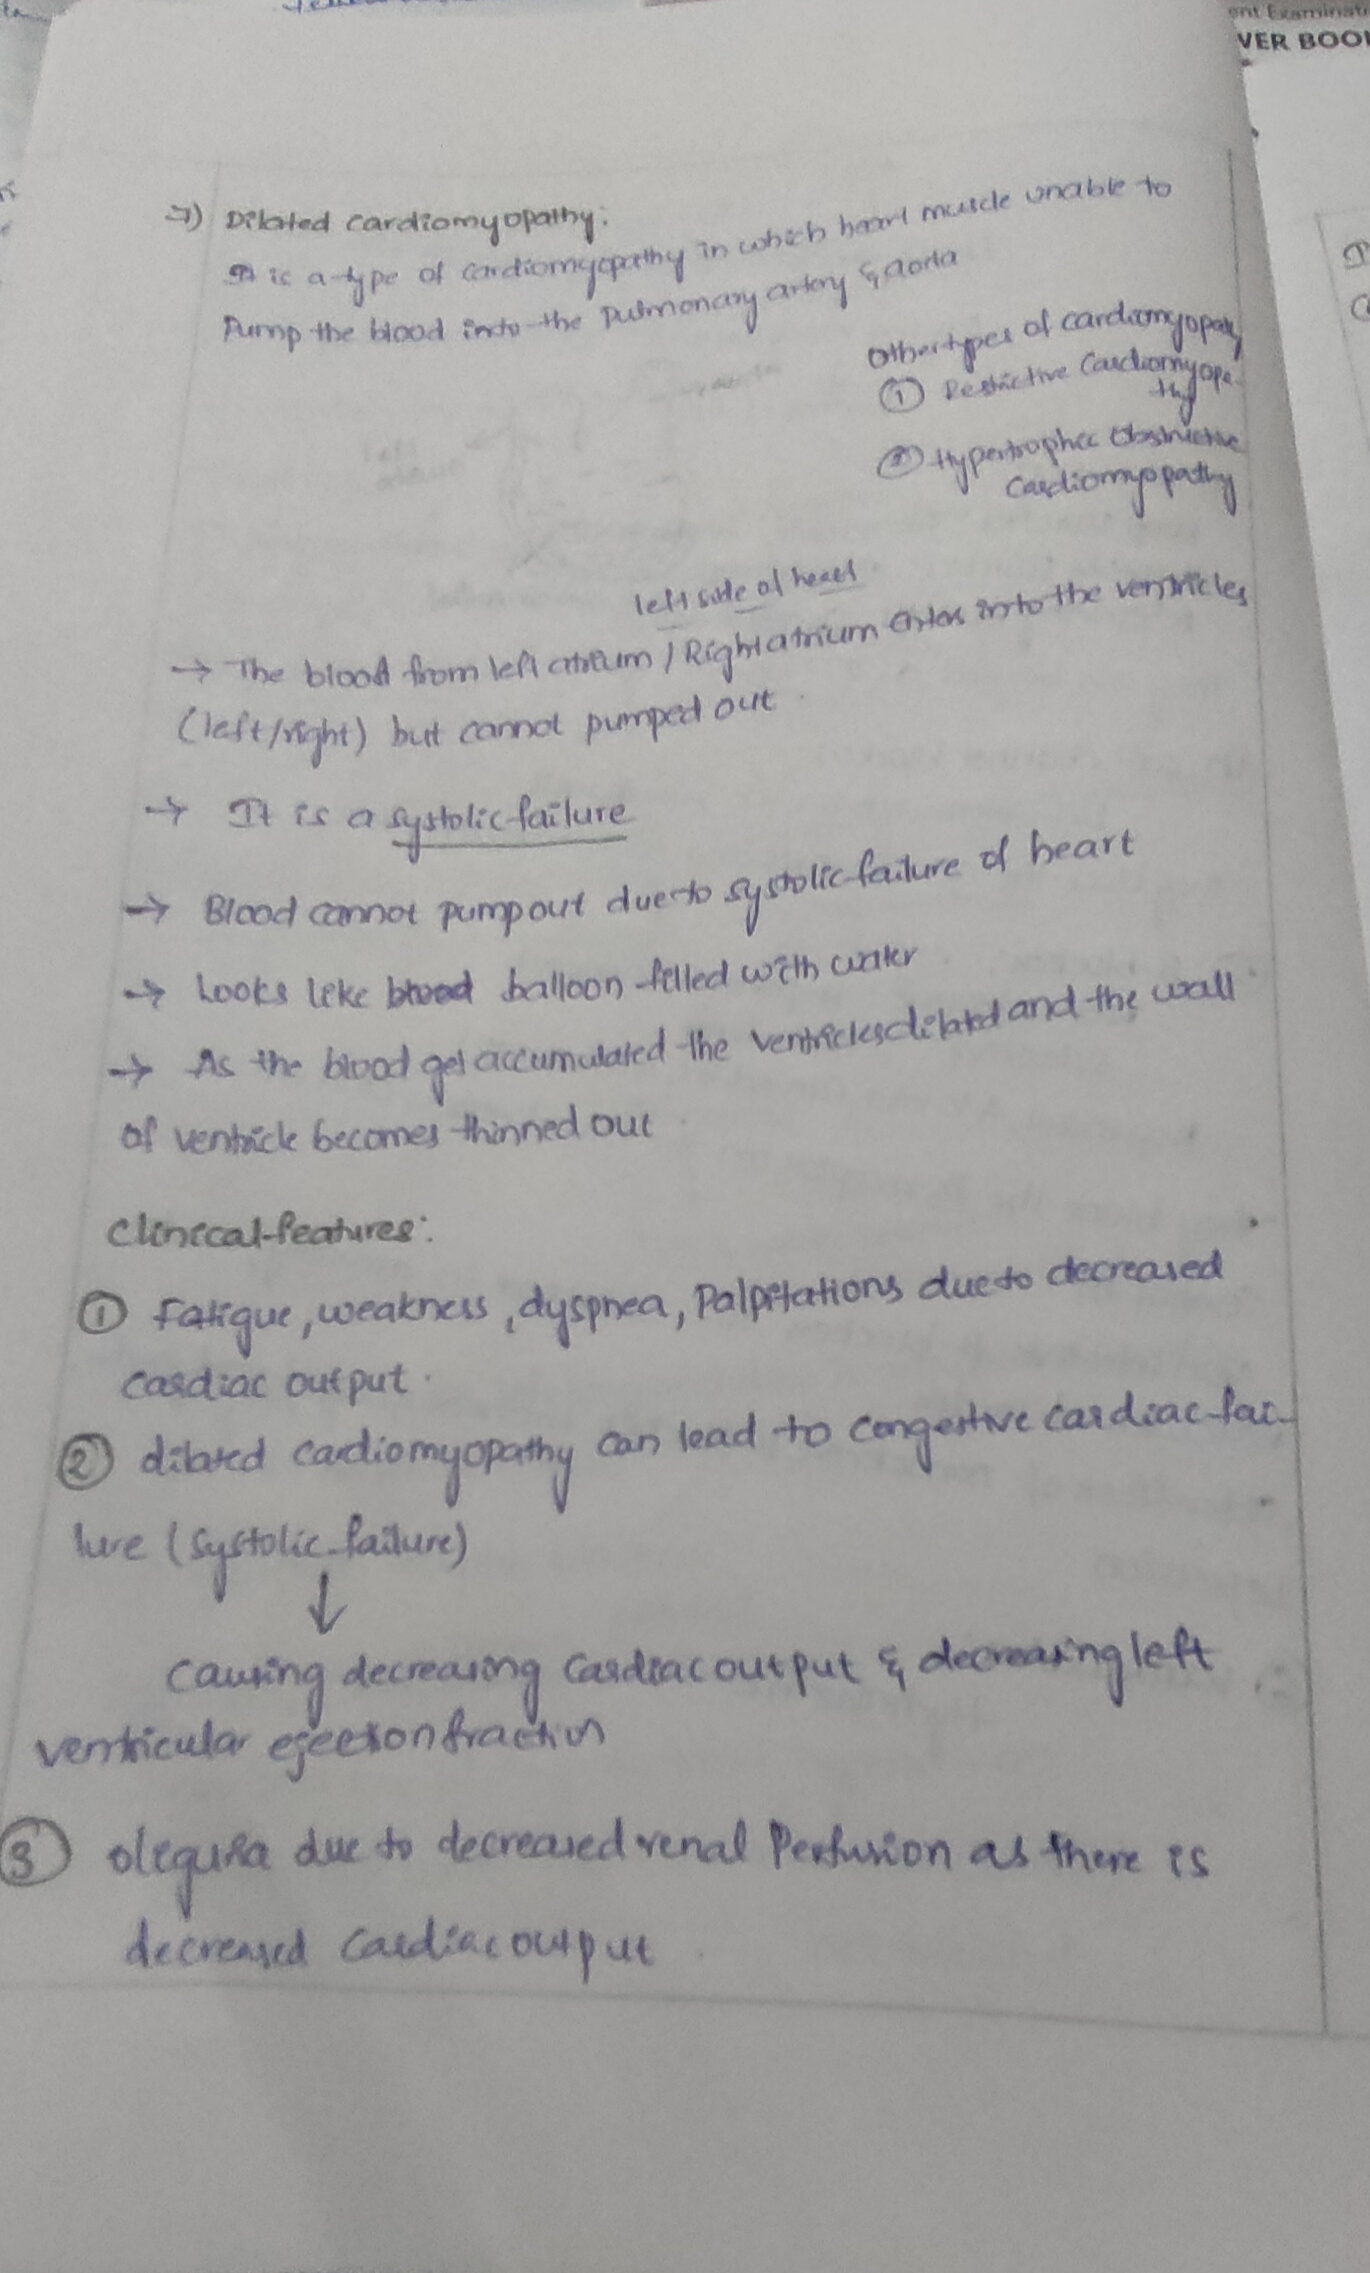 ent Examinati
VER BOOK
7) Dilated cardiomyopathy:
It is a type of cardiomyopathy in which heart muscle unable to
Pump the blood into the Pulmonary artery & aorta
Other types of cardiomyopathy
① Restrictive Cardiomyopa
thy
② Hypertrophic Obstructive
Cardiomyopathy
left side of heart
→ The blood from left atrium / Right atrium enters into the ventricles
(left/right) but cannot pumped out.
→ It is a systolic failure
→ Blood cannot pump out due to systolic failure of heart
→ Looks like balloon filled with water
→ As the blood get accumulated the ventricles dilated and the wall
of ventricle becomes thinned out
Clinical features:
① Fatigue, weakness, dyspnea, Palpitations due to decreased
cardiac output.
② dilated cardiomyopathy can lead to congestive cardiac fai-
lure (systolic failure)
↓
causing decreasing cardiac output & decreasing left
ventricular ejection fraction
③ oliguria due to decreased renal Perfusion as there is
decreased cardiac output